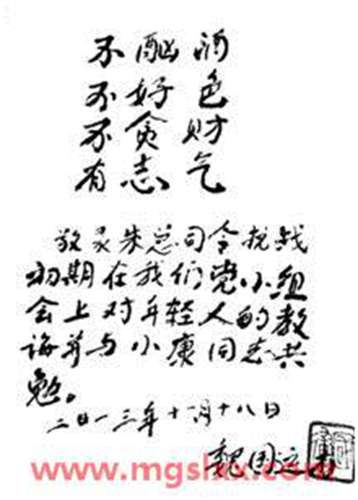 不酗酒
不好色
不贪财
有志气
敬录朱总司令抗战
初期在我们党小组
会上对年轻人的教
诲并与小康同志共
勉。
二〇一三年十一月十八日
魏国运